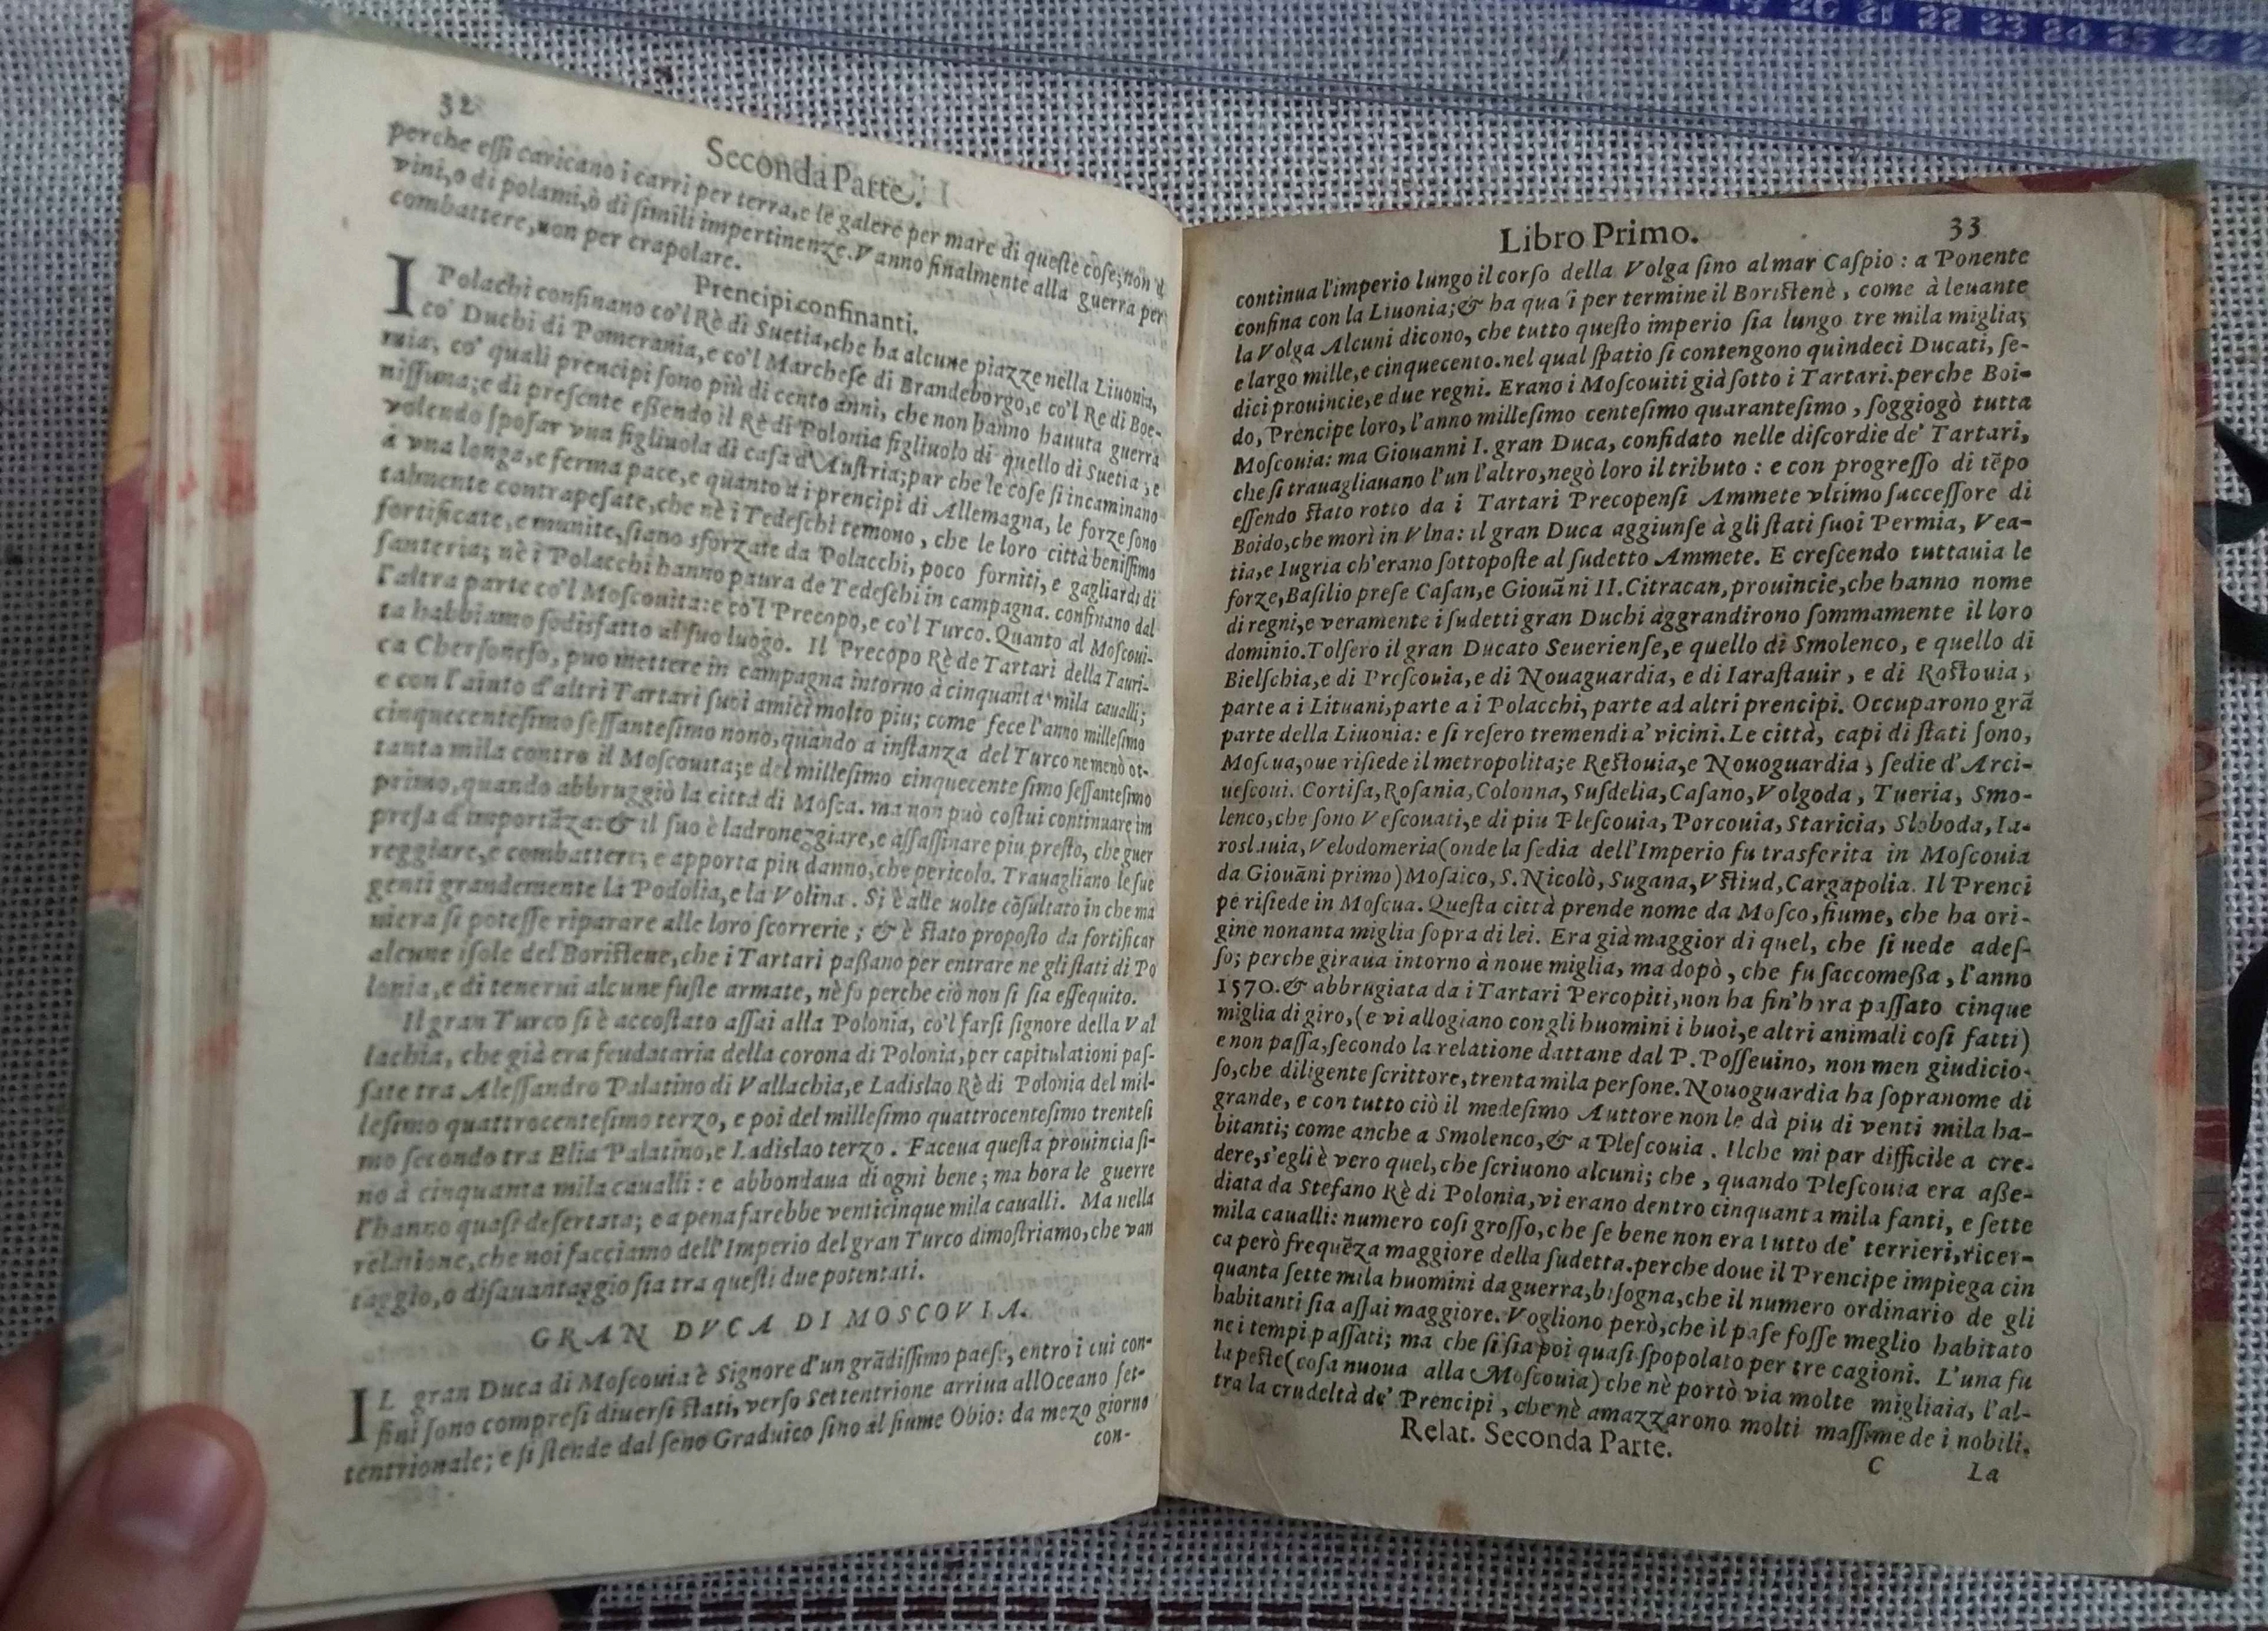 32
Seconda Parte.
perche essi caricano i carri per terra, e le galere per mare di queste cose; non d
vini, o di polami, ò di simili impertinenze. Vanno finalmente alla guerra per
combattere, non per crapolare.
Prencipi confinanti.
I Polachi confinano co'l Rè di Suetia, che ha alcune piazze nella Liuonia,
co' Duchi di Pomerania, e co'l Marchese di Brandeborgo, e co'l Re di Boe-
mia, co' quali prencipi sono più di cento anni, che non hanno hauuta guerra
nissuna; e di presente essendo il Rè di Polonia figliuolo di quello di Suetia, e
volendo sposar vna figliuola di casa d'Austria; par che le cose si incaminano
à vna longa, e ferma pace, e quanto a i prencipi di Allemagna, le forze sono
talmente contrapesate, che nè i Tedeschi temono, che le loro città benissimo
fortificate, e munite, siano sforzate da Polacchi, poco forniti, e gagliardi di
fanteria; nè i Polacchi hanno paura de Tedeschi in campagna. confinano dal
l'altra parte co'l Moscouita: e co'l Precopo, e co'l Turco. Quanto al Moscoui-
ta habbiamo sodisfatto al suo luogo. Il Precopo Rè de Tartari della Tauri-
ca Chersoneso, puo mettere in campagna intorno à cinquanta mila caualli;
e con l'aiuto d'altri Tartari suoi amici molto piu; come fece l'anno millesimo
cinquecentesimo sessantesimo nono, quando a instanza del Turco ne menò ot-
tanta mila contro il Moscouita; e del millesimo cinquecentesimo sessantesimo
primo, quando abbruggiò la città di Mosca. ma non può costui continuare im
presa d'importãza: & il suo è ladroneggiare, e assassinare piu presto, che guer
reggiare, e combattere; e apporta piu danno, che pericolo. Trauagliano le sue
genti grandemente la Podolia, e la Volina. Si è alle uolte cõsultato in che ma
niera si potesse riparare alle loro scorrerie; & è stato proposto da fortificar
alcune isole del Boristene, che i Tartari passano per entrare ne gli stati di Po
lonia, e di tenerui alcune fuste armate, nè so perche ciò non si sia essequito.
Il gran Turco si è accostato assai alla Polonia, co'l farsi signore della Val
lachia, che già era feudataria della corona di Polonia, per capitulationi pas-
sate tra Alessandro Palatino di Vallachia, e Ladislao Rè di Polonia del mil-
lesimo quattrocentesimo terzo, e poi del millesimo quattrocentesimo trentesi
mo secondo tra Elia Palatino, e Ladislao terzo. Faceua questa prouincia si-
no à cinquanta mila caualli: e abbondaua di ogni bene; ma hora le guerre
l'hanno quasi desertata; e a pena farebbe venticinque mila caualli. Ma nella
relatione, che noi facciamo dell'Imperio del gran Turco dimostriamo, che van
taggio, o disauantaggio sia tra questi due potentati.
GRAN DVCA DI MOSCOVIA.
IL gran Duca di Moscouia è Signore d'un grãdissimo paese, entro i cui con-
fini sono compresi diuersi stati, verso Settentrione arriua all'Oceano set-
tentrionale; e si stende dal seno Graduico sino al fiume Obio: da mezo giorno
con-
Libro Primo. 33
continua l'imperio lungo il corso della Volga sino al mar Caspio: a Ponente
confina con la Liuonia; & ha quasi per termine il Boristenè, come à leuante
la Volga Alcuni dicono, che tutto questo imperio sia lungo tre mila miglia;
e largo mille, e cinquecento. nel qual spatio si contengono quindeci Ducati, se-
dici prouincie, e due regni. Erano i Moscouiti già sotto i Tartari. perche Boi-
do, Prencipe loro, l'anno millesimo centesimo quarantesimo, soggiogò tutta
Moscouia: ma Giouanni I. gran Duca, confidato nelle discordie de' Tartari,
che si trauagliauano l'un l'altro, negò loro il tributo: e con progresso di tẽpo
essendo stato rotto da i Tartari Precopensi Ammete vltimo successore di
Boido, che morì in Vlna: il gran Duca aggiunse à gli stati suoi Permia, Vea-
tia, e Iugria ch'erano sottoposte al sudetto Ammete. E crescendo tuttauia le
forze, Basilio prese Casan, e Giouãni II. Citracan, prouincie, che hanno nome
di regni, e veramente i sudetti gran Duchi aggrandirono sommamente il loro
dominio. Tolsero il gran Ducato Seueriense, e quello di Smolenco, e quello di
Bielschia, e di Prescouia, e di Nouaguardia, e di Iarastauir, e di Rostouia,
parte a i Lituani, parte a i Polacchi, parte ad altri prencipi. Occuparono grã
parte della Liuonia: e si resero tremendi a' vicini. Le città, capi di stati sono,
Moscua, oue risiede il metropolita; e Restouia, e Nouoguardia, sedie d'Arci-
uescoui. Cortisa, Rosania, Colonna, Susdelia, Casano, Volgoda, Tueria, Smo-
lenco, che sono Vescouati, e di piu Plescouia, Porcouia, Staricia, Sloboda, Ia-
roslauia, Velodomeria (onde la sedia dell'Imperio fu trasferita in Moscouia
da Giouãni primo) Mosaico, S. Nicolò, Sugana, Vstiud, Cargapolia. Il Prenci
pe risiede in Moscua. Questa città prende nome da Mosco, fiume, che ha ori-
gine nonanta miglia sopra di lei. Era già maggior di quel, che si uede ades-
so; perche giraua intorno à noue miglia, ma dopò, che fu saccomessa, l'anno
1570. & abbrugiata da i Tartari Percopiti, non ha fin'hora passato cinque
miglia di giro, (e vi allogiano con gli huomini i buoi, e altri animali cosi fatti)
e non passa, secondo la relatione dattane dal P. Posseuino, non men giudicio-
so, che diligente scrittore, trenta mila persone. Nouoguardia ha sopranome di
grande, e con tutto ciò il medesimo Auttore non le dà piu di venti mila ha-
bitanti; come anche a Smolenco, & a Plescouia. Ilche mi par difficile a cre-
dere, s'egli è vero quel, che scriuono alcuni; che, quando Plescouia era asse-
diata da Stefano Rè di Polonia, vi erano dentro cinquanta mila fanti, e sette
mila caualli: numero cosi grosso, che se bene non era tutto de' terrieri, ricer-
ca però frequẽza maggiore della sudetta. perche doue il Prencipe impiega cin
quanta sette mila huomini da guerra, bisogna, che il numero ordinario de gli
habitanti sia assai maggiore. Vogliono però, che il pase fosse meglio habitato
ne i tempi passati; ma che si sia poi quasi spopolato per tre cagioni. L'una fu
la peste (cosa nuoua alla Moscouia) che nè portò via molte migliaia, l'al-
tra la crudeltà de' Prencipi, che nè amazzarono molti massime de i nobili.
Relat. Seconda Parte. C La